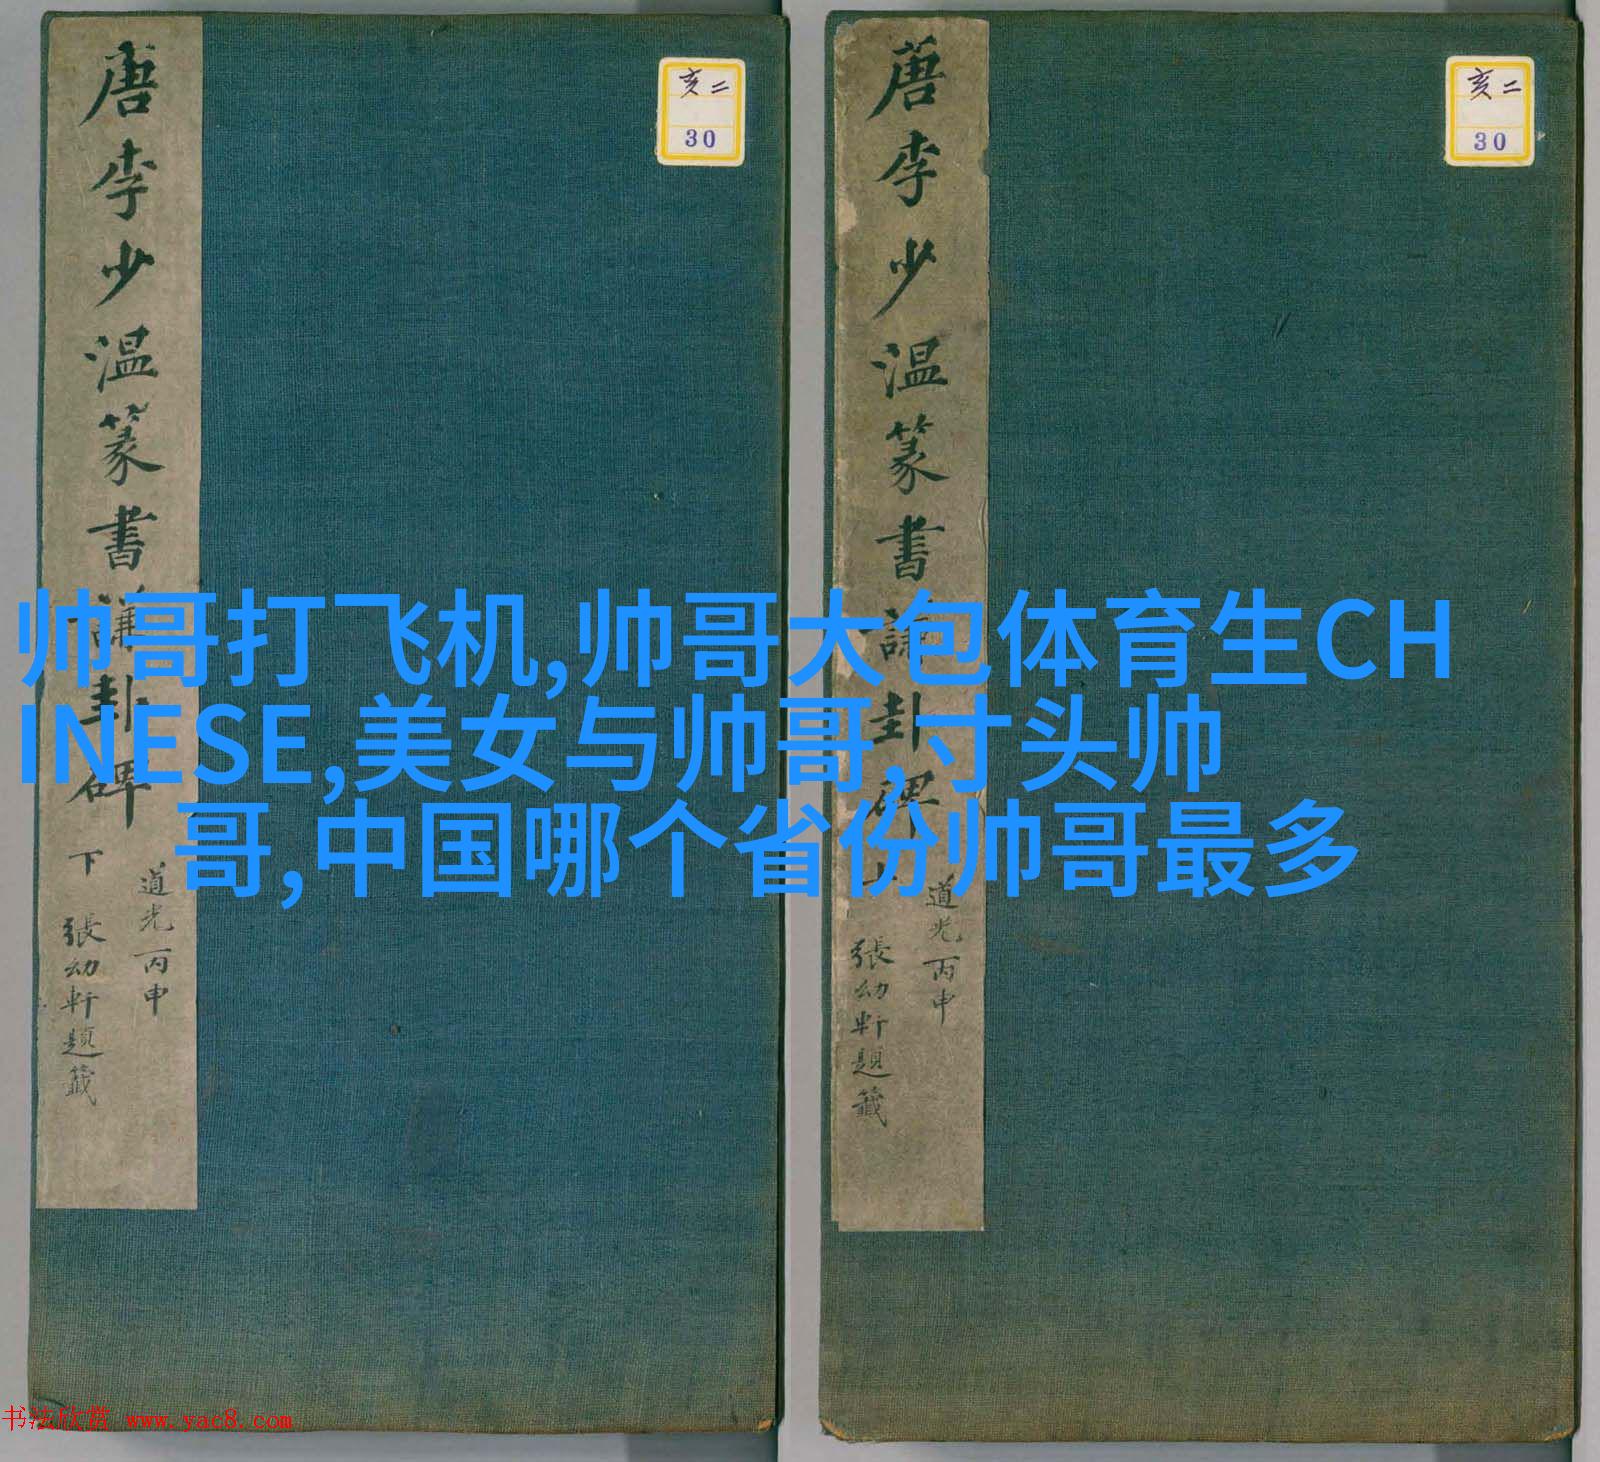 唐李少温篆書謙卦碑下
道光丙申
張幼軒題籤
亥二
30
唐李少温篆書謙卦碑
道光丙申
張幼軒題籤
亥二
30
帅哥打飞机,帅哥大包体育生CH
INESE,美女与帅哥,寸头帅
哥,中国哪个省份帅哥最多
书法欣赏 www.yac8.com